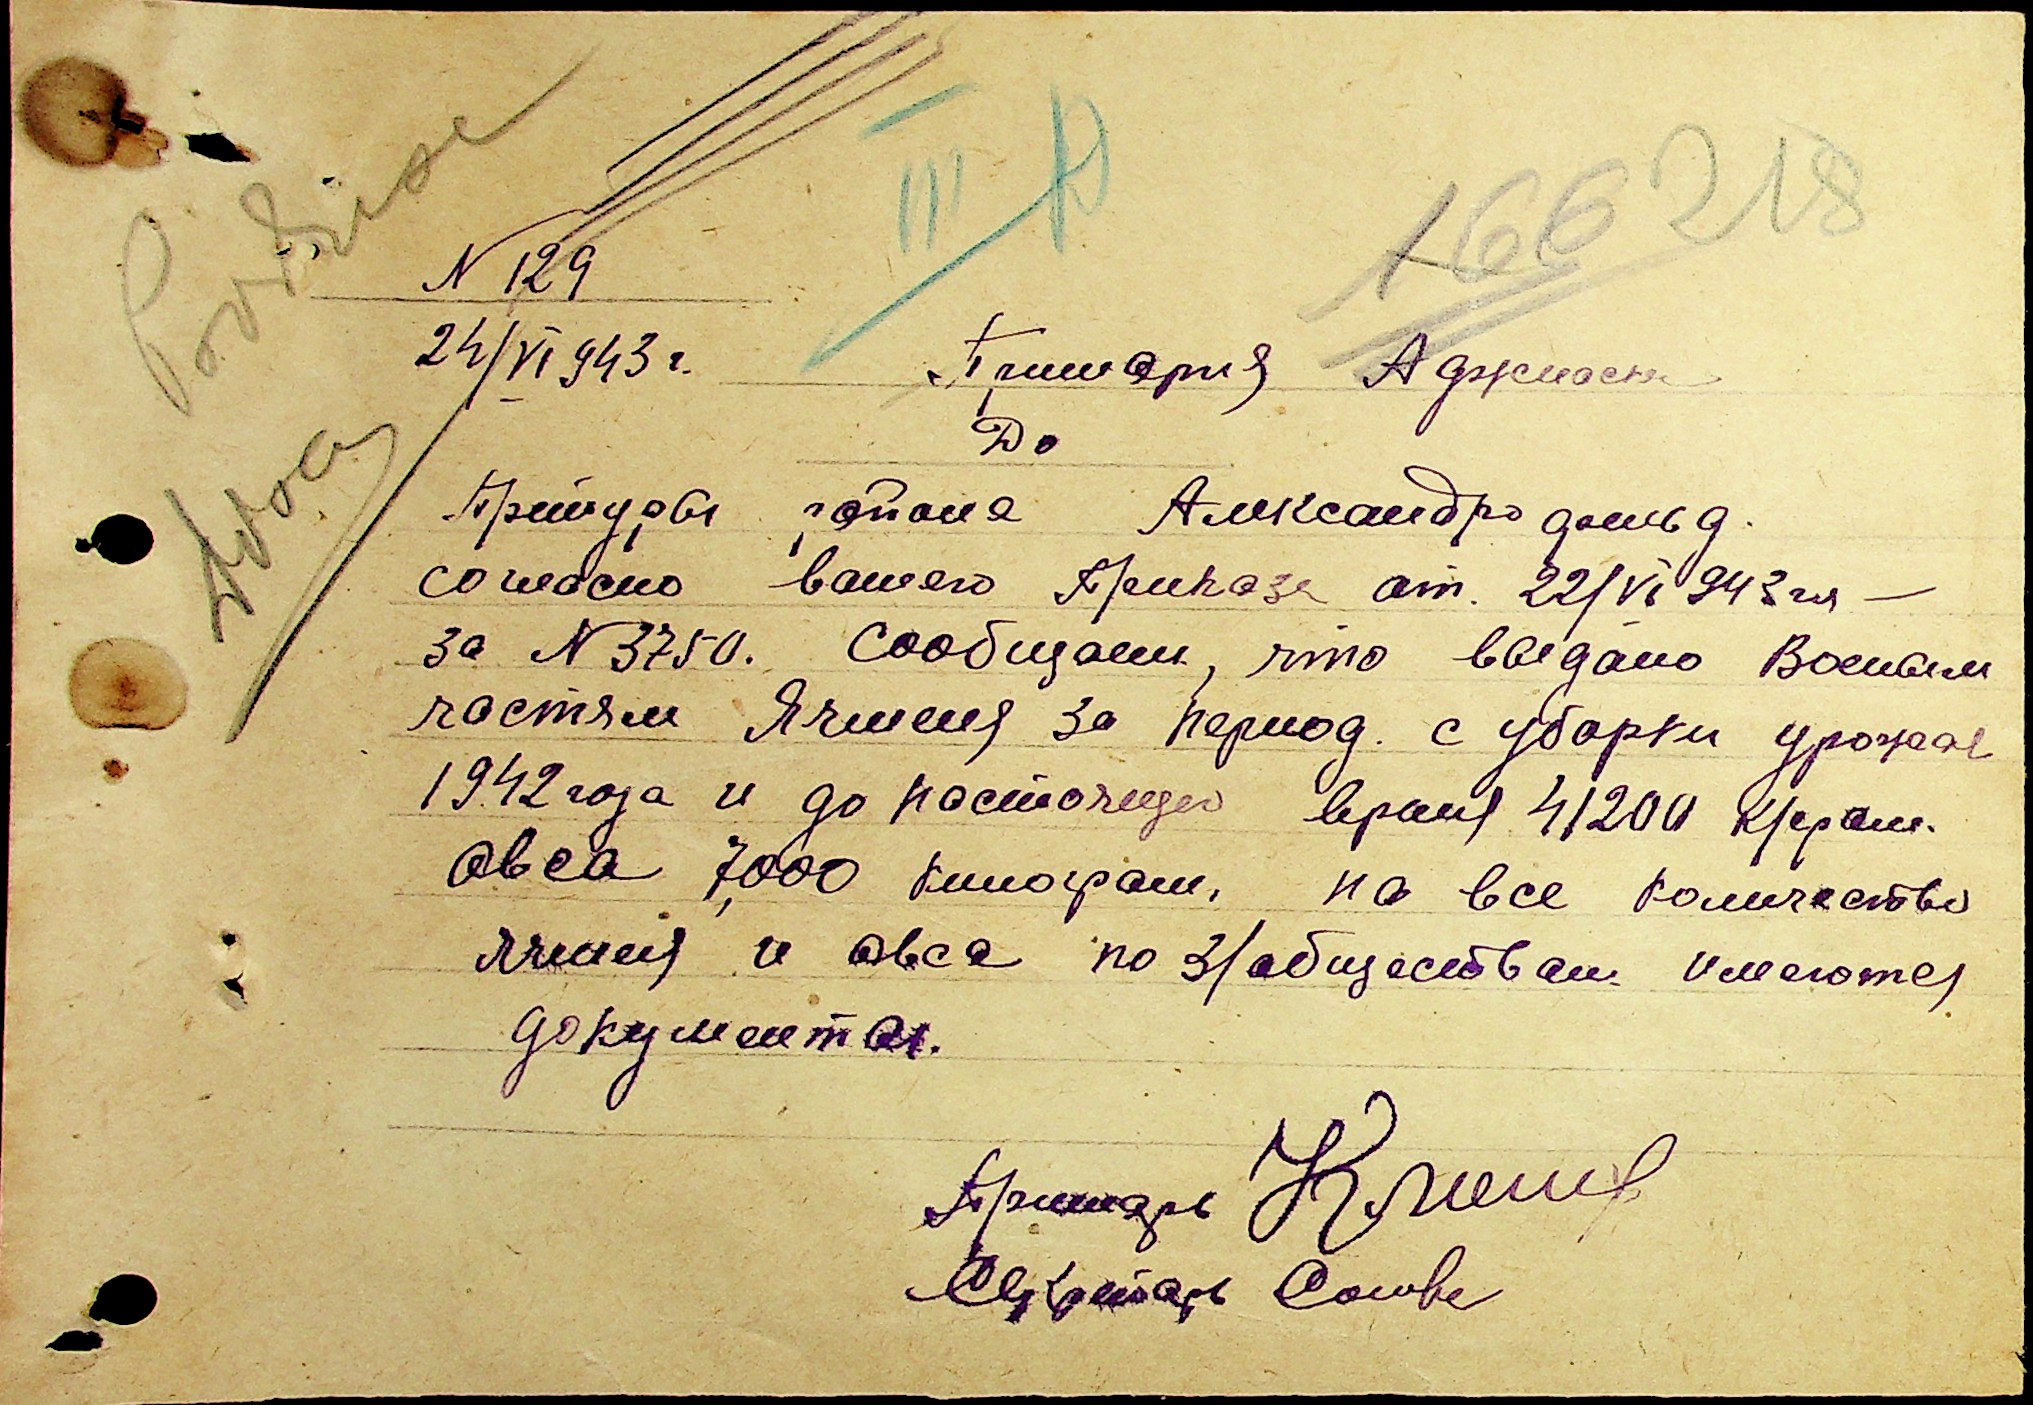 III
166 218
N 129
24/VI 943 г.
Примария Аджиаск
До
Претуры района Александродольд.
согласно вашего Приказа от. 22/VI 943 г –
за N 3750. Сообщаем, что выдано Военым
частям Ячменя за период. с уборки урожая
1942 года и до настоящего время 41200 К/грам.
Овса 7,000 килограм, на все количество
ячменя и овса по З/обществам имеются
документы.
Примарь
Секретарь